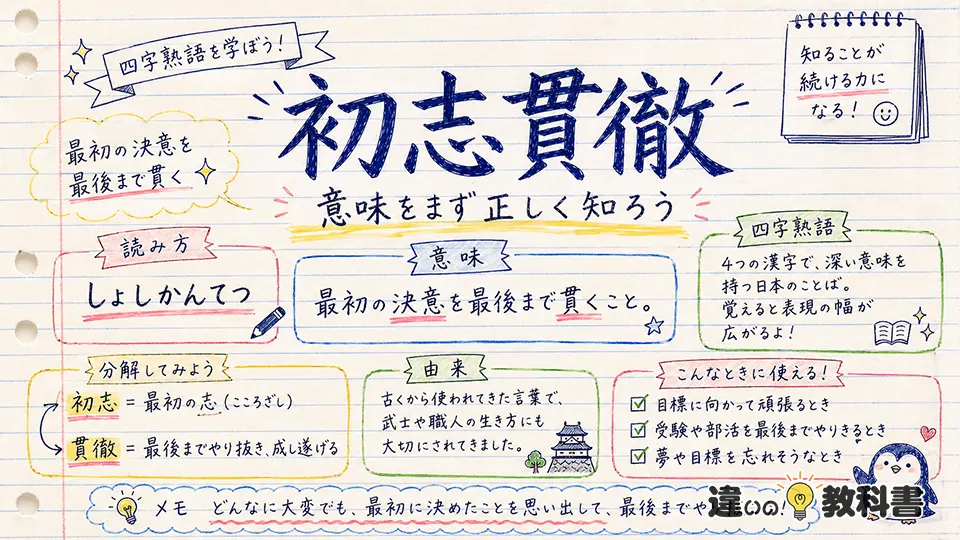 四字熟語を学ぼう！
知ることが
続ける力に
なる！
初志貫徹
最初の決意を
最後まで貫く
意味をまず正しく知ろう
読み方
しょしかんてつ
意味
最初の決意を最後まで貫くこと。
四字熟語
4つの漢字で、深い意味を
持つ日本のことば。
覚えると表現の幅が
広がるよ！
分解してみよう
初志 = 最初の志（こころざし）
貫徹 = 最後までやり抜き、成し遂げる
由来
古くから使われてきた言葉で、
武士や職人の生き方にも
大切にされてきました。
こんなときに使える！
目標に向かって頑張るとき
受験や部活を最後までやりきるとき
夢や目標を忘れそうなとき
メモ どんなに大変でも、最初に決めたことを思い出して、最後までや
違いの！教科書